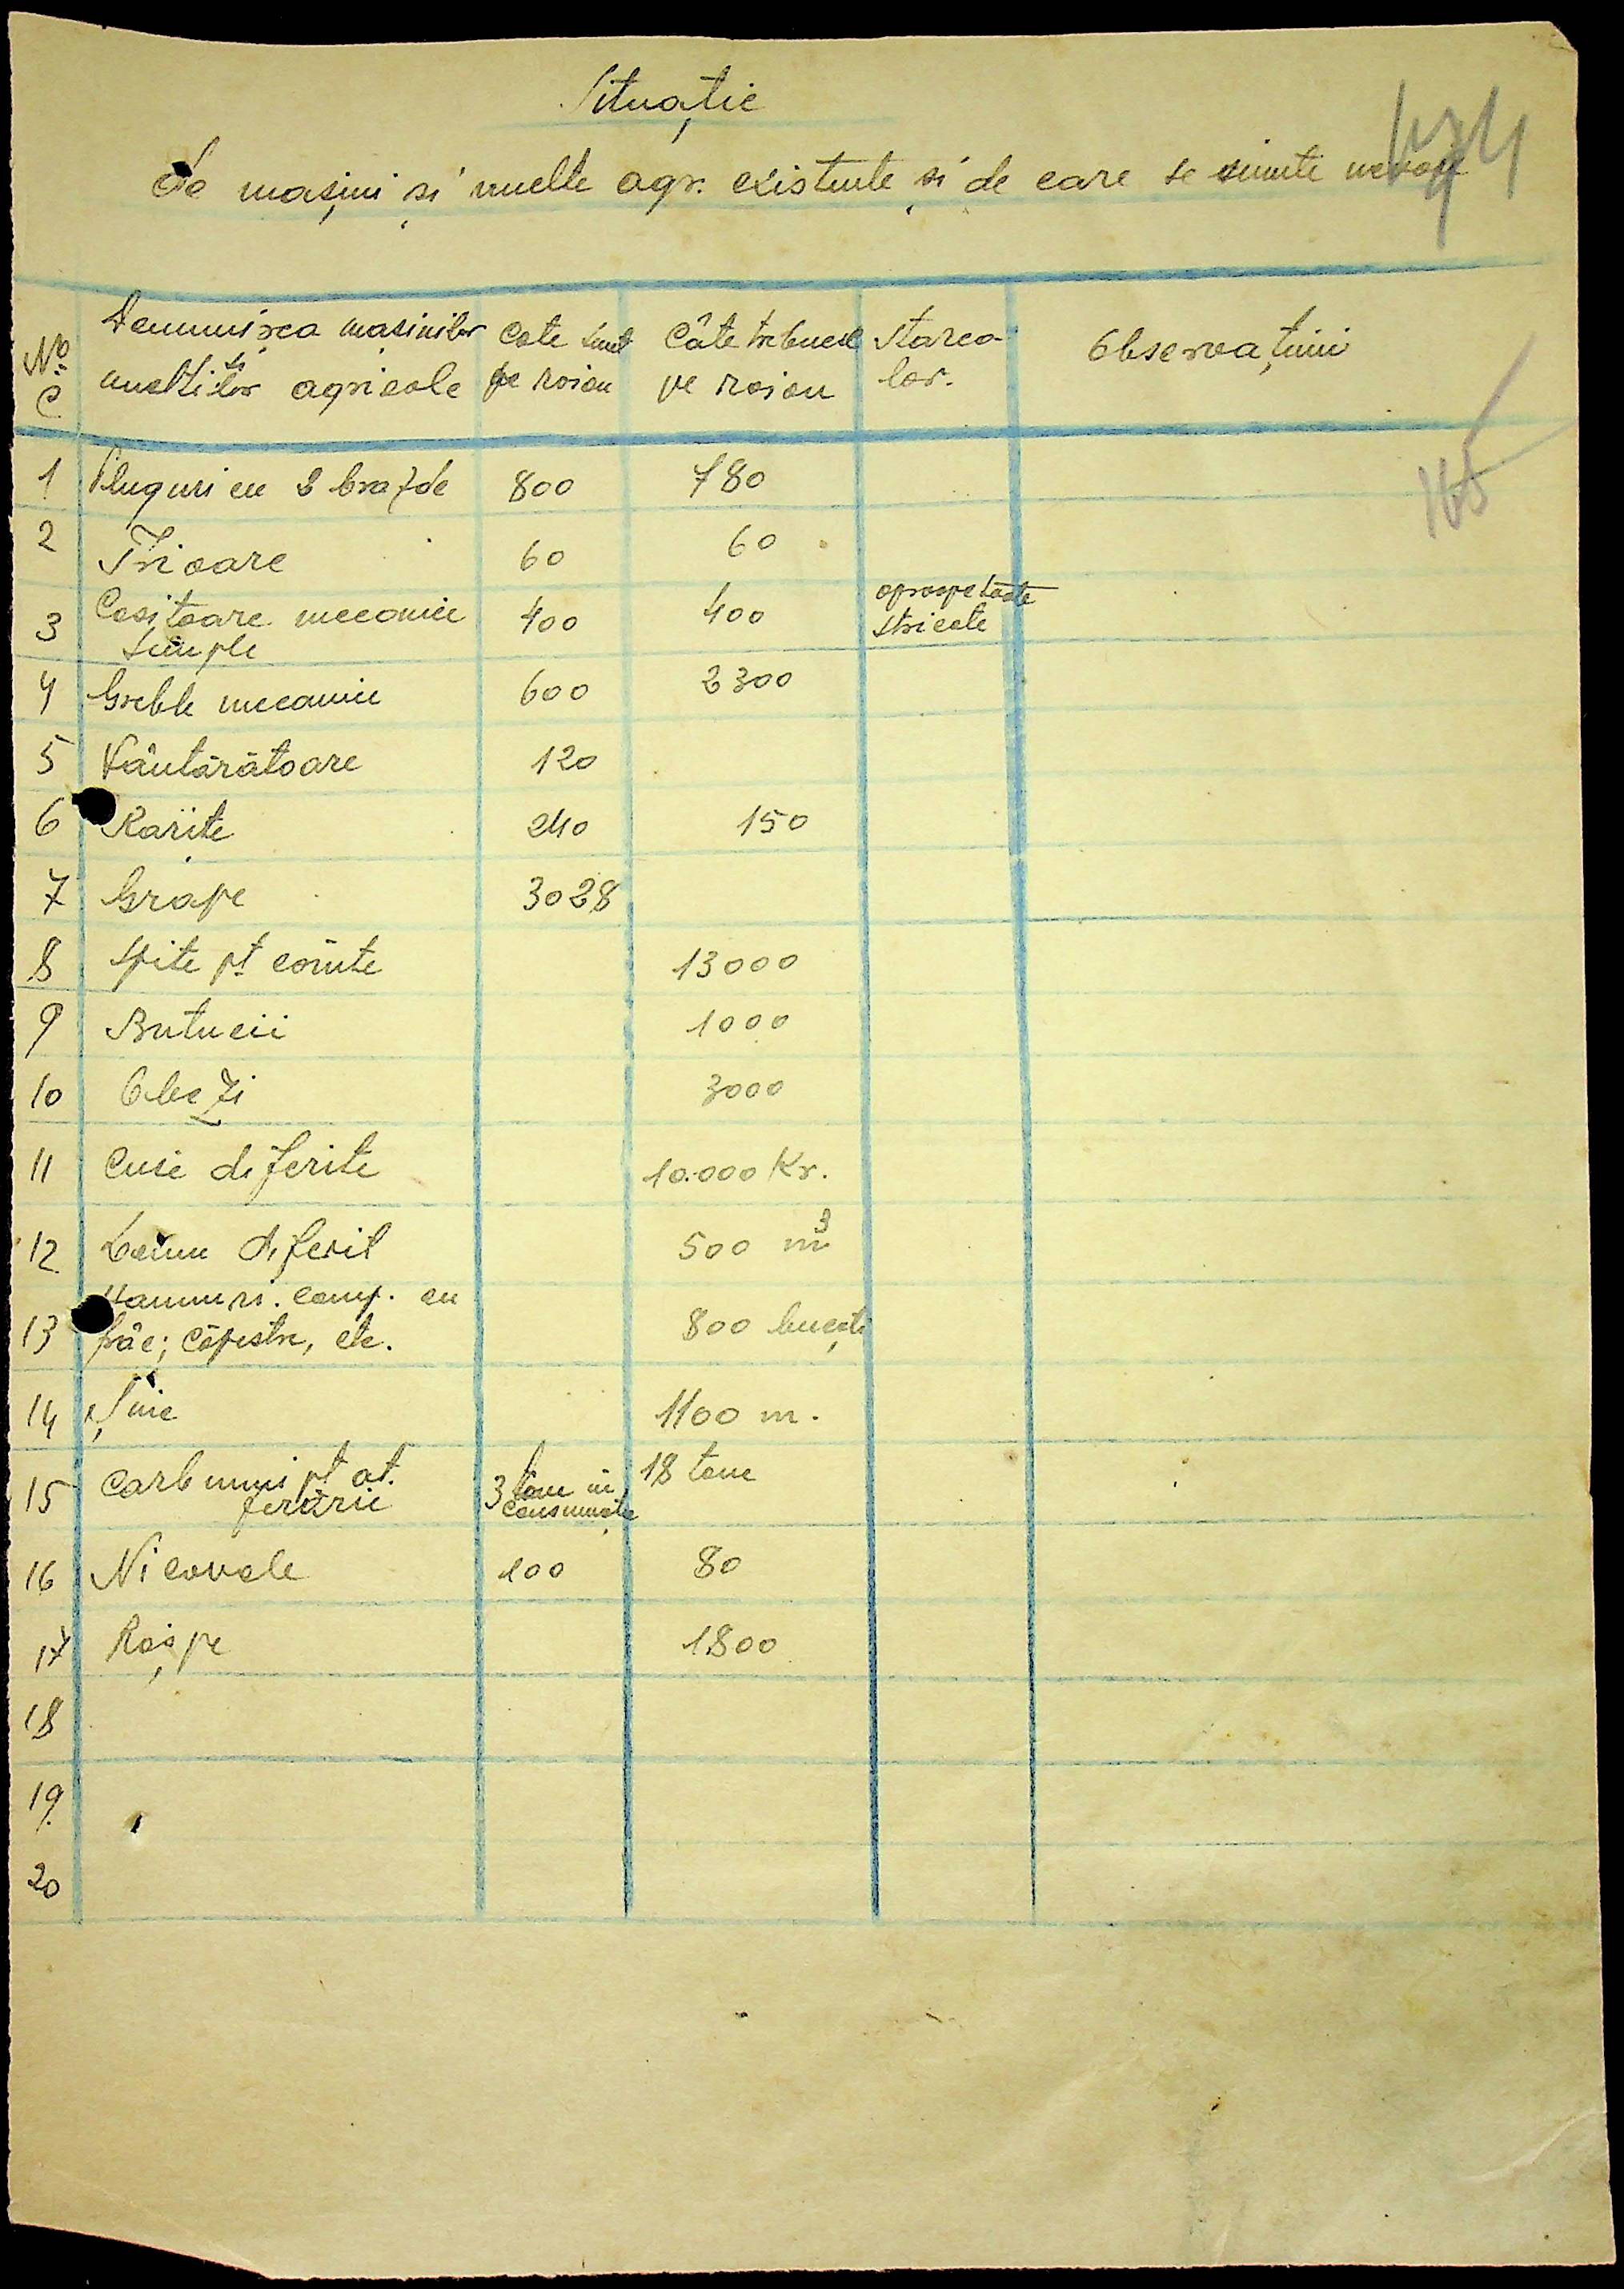 Situație
De mașini și unelte agr. existente și de care se simte nevoie
174
165
No. c
Denumirea masinilor și uneltilor agricole
Cate sunt pe raion
Câte trebuesc pe raion
Starea lor.
Observațiuni
1 Pluguri cu 2 brazde 800 780
2 Trioare 60 60
3 Cositoare mecanice simple 400 400 aproape toate stricate
4 Greble mecanice 600 2300
5 Vânturătoare 120
6 Rarite 240 150
7 Grape 3028
8 Spite pt căruțe 13000
9 Butucii 1000
10 Obezi 3000
11 Cuie diferite 10.000 Kr.
12 Lemn diferit 500 m3
13 Hamuri. comp. cu frâe; căpestre, etc. 800 bucați
14 Șine 1100 m.
15 Carbuni pt at. ferărie 3 tone în consumație 18 tone
16 Nicovale 100 80
17 Rașpe 1800
18
19.
20